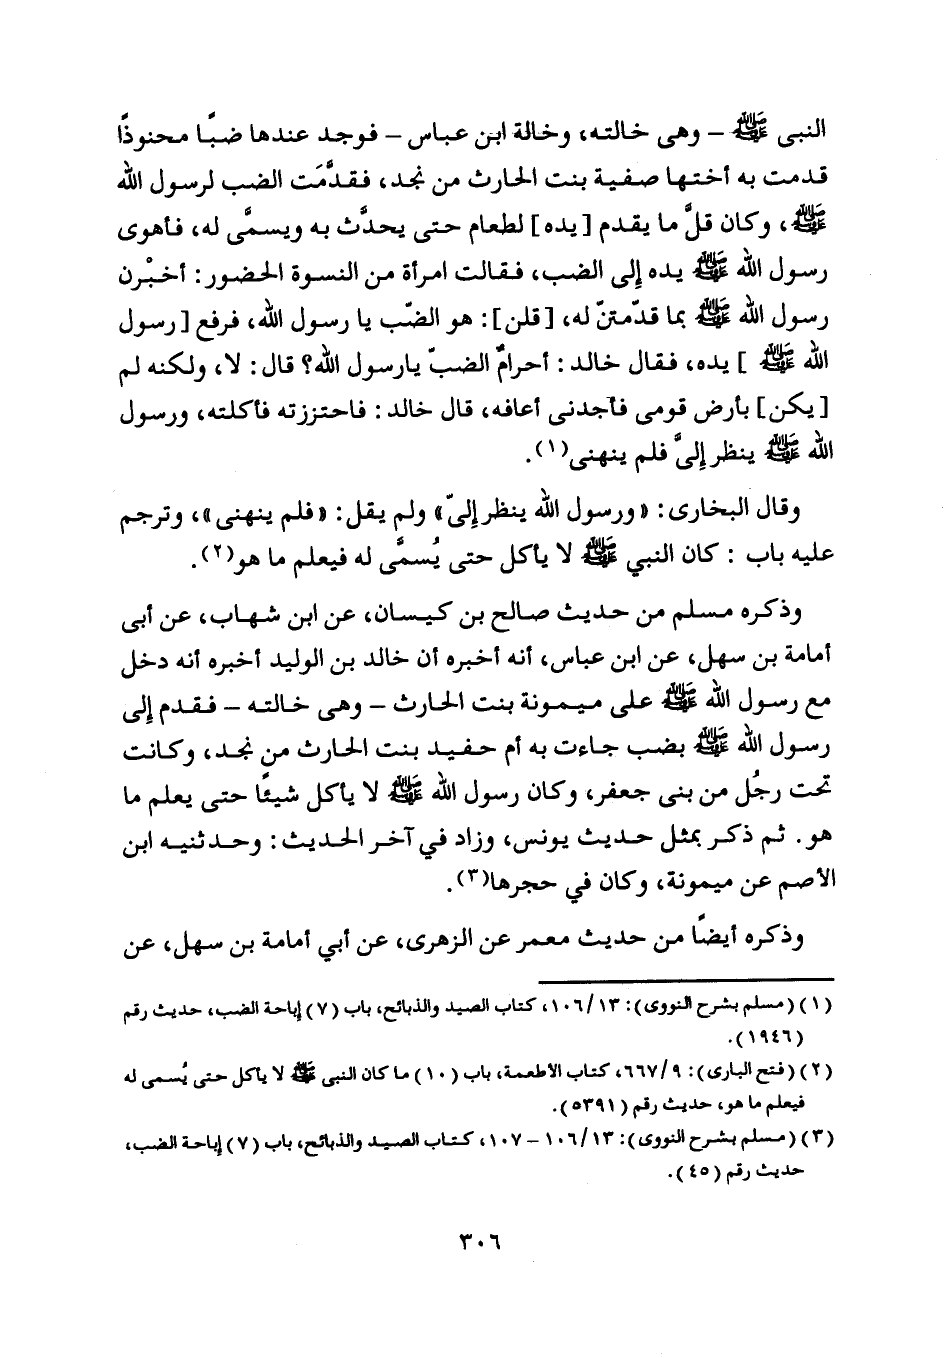 النبى ﷺ – وهى خالته، وخالة ابن عباس – فوجد عندها ضبًّا محنوذًا
قدمت به أختها صفية بنت الحارث من نجد، فقدَّمَت الضب لرسول الله
ﷺ، وكان قلَّ ما يقدم [يده] لطعام حتى يحدَّث به ويسمَّى له، فأهوى
رسول الله ﷺ يده إلى الضب، فقالت امرأة من النسوة الحضور: أخبْرن
رسول الله ﷺ بما قدّمتنّ له، [قلن]: هو الضّب يا رسول الله، فرفع [رسول
الله ﷺ ] يده، فقال خالد: أحرامٌ الضبّ يارسول الله؟ قال: لا، ولكنه لم
[يكن] بأرض قومى فآجدنى أعافه، قال خالد: فاحتززته فأكلته، ورسول
الله ﷺ ينظر إلىَّ فلم ينهنى(١).
وقال البخارى: «ورسول الله ينظر إلىّ» ولم يقل: «فلم ينهنى»، وترجم
عليه باب : كان النبي ﷺ لا يأكل حتى يُسمَّى له فيعلم ما هو(٢).
وذكره مسلم من حديث صالح بن كيسان، عن ابن شهاب، عن أبى
أمامة بن سهل، عن ابن عباس، أنه أخبره أن خالد بن الوليد أخبره أنه دخل
مع رسول الله ﷺ على ميمونة بنت الحارث – وهى خالته – فقدم إلى
رسول الله ﷺ بضب جاءت به أم حفيد بنت الحارث من نجد، وكانت
تحت رجُل من بنى جعفر، وكان رسول الله ﷺ لا يأكل شيئًا حتى يعلم ما
هو. ثم ذكر بمثل حديث يونس، وزاد في آخر الحديث: وحدثنيه ابن
الأصم عن ميمونة، وكان في حجرها(٣).
وذكره أيضًا من حديث معمر عن الزهرى، عن أبي أمامة بن سهل، عن
(١) (مسلم بشرح النووى): ١٣/ ١٠٦، كتاب الصيد والذبائح، باب (٧) إباحة الضب، حديث رقم
(١٩٤٦).
(٢) (فتح البارى): ٩/ ٦٦٧، كتاب الأطعمة، باب (١٠) ما كان النبي ﷺ لا يأكل حتى يُسمى له
فيعلم ما هو، حديث رقم (٥٣٩١).
(٣) (مسلم بشرح النووى): ١٣/ ١٠٦ – ١٠٧، كتاب الصيد والذبائح، باب (٧) إباحة الضب،
حديث رقم (٤٥).
٣٠٦